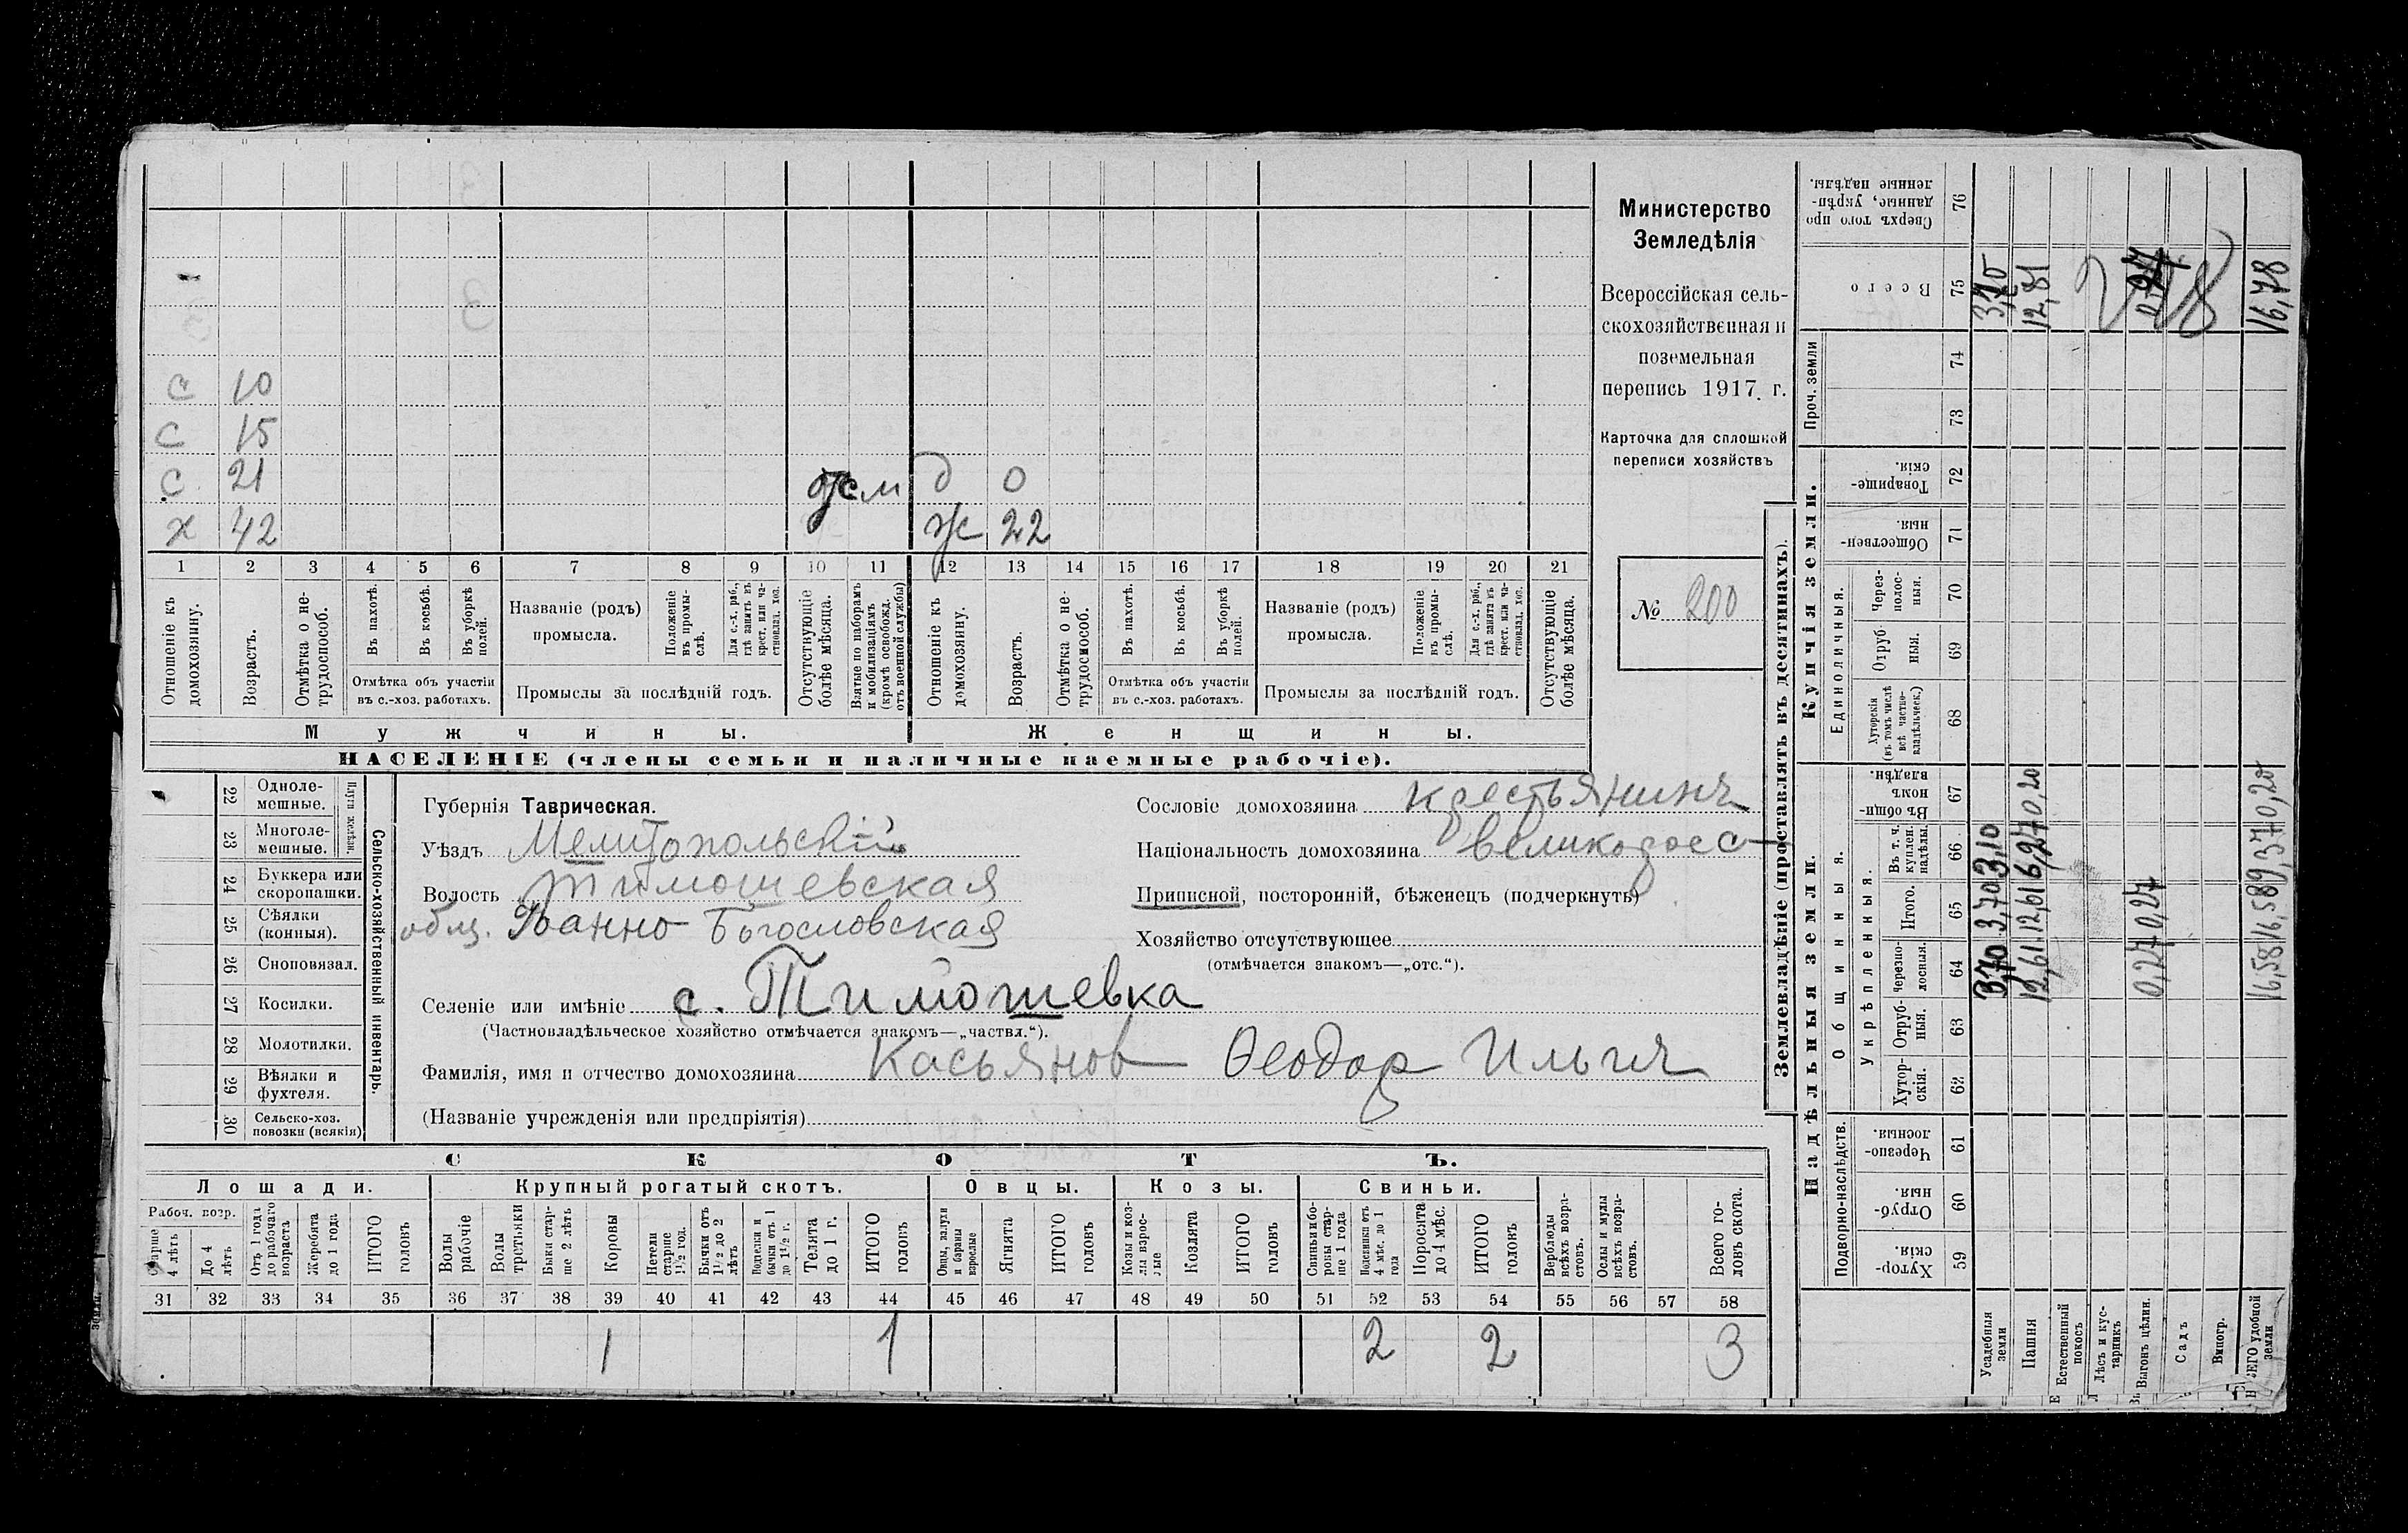 с 10
с 15
с 21 д 0
х 42 ж 22
1 2 3 4 5 6 7 8 9 10 11 12 13 14 15 16 17 18 19 20 21
Отношеніе къ домохозяину.
Возрастъ.
Отмѣтка о не-
трудоспособ.
Въ пахотѣ.
Въ косьбѣ.
Въ уборкѣ полей.
Отмѣтка объ участіи
въ с.-хоз. работахъ.
Названіе (родъ)
промысла.
Положеніе въ промы-
слѣ.
Для с.-х. раб.,
гдѣ занятъ въ
крест. или ча-
стновлад. хоз.
Промыслы за послѣдній годъ.
Отсутствующіе
болѣе мѣсяца.
Взятые по наборамъ
и мобилизаціямъ
(кромѣ освобожд.
отъ военной службы)
Отношеніе къ
домохозяину.
Возрастъ.
Отмѣтка о не-
трудоспособ.
Въ пахотѣ.
Въ косьбѣ.
Въ уборкѣ полей.
Отмѣтка объ участіи
въ с.-хоз. работахъ.
Названіе (родъ)
промысла.
Положеніе въ промы-
слѣ.
Для с.-х. раб.,
гдѣ занята въ
крест. или ча-
стновлад. хоз.
Промыслы за послѣдній годъ.
Отсутствующіе
болѣе мѣсяца.
Мужчины. Женщины.
НАСЕЛЕНІЕ (члены семьи и наличные наемные рабочіе).
Министерство
Земледѣлія
Всероссійская сель-
скохозяйственная и
поземельная
перепись 1917 г.
Карточка для сплошной
переписи хозяйствъ
№ 200
22 Одноле-
мешные.
23 Многоле-
мешные.
Плуги желѣзн.
24 Буккера или
скоропашки.
25 Сѣялки
(конныя).
26 Сноповязал.
27 Косилки.
28 Молотилки.
29 Вѣялки и
фухтеля.
30 Сельско-хоз.
повозки (всякія)
Сельско-хозяйственный инвентарь.
Губернія Таврическая.
Уѣздъ Мелитопольскій
Волость Тимошевская
общ. Іоанно-Богословская
Селеніе или имѣніе с. Тимошевка
(Частновладѣльческое хозяйство отмѣчается знакомъ—„частвл.“).
Фамилія, имя и отчество домохозяина Касьянов Ѳеодор Ильич
(Названіе учрежденія или предпріятія)
Сословіе домохозяина крестьянинъ
Національность домохозяина великоросс
Приписной, посторонній, бѣженецъ (подчеркнуть)
Хозяйство отсутствующее
(отмѣчается знакомъ—„отс.“).
СКОТЪ.
Лошади. Крупный рогатый скотъ. Овцы. Козы. Свиньи.
Рабоч. возр.
Старше
4 лѣтъ
До 4
лѣтъ
Отъ 1 года
до рабочаго
возраста
Жеребята
до 1 года
ИТОГО
головъ
Волы
рабочіе
Волы
третьяки
Быки стар-
ше 2 лѣтъ
Коровы
Нетели
старше
1½ год.
Бычки отъ
1½ до 2
лѣтъ
Водпелки и
бычки отъ 1
до 1½ г.
Телята
до 1 г.
ИТОГО
головъ
Овцы, валухи
и бараны
взрослые
Ягнята
ИТОГО
головъ
Козы и коз-
лы взрос-
лые
Козлята
ИТОГО
головъ
Свиньи и бо-
ровы стар-
ше 1 года
Подсвинки отъ
4 мѣс. до 1
года
Поросята
до 4 мѣс.
ИТОГО
головъ
Верблюды
всѣхъ возра-
стовъ.
Ослы и мулы
всѣхъ возра-
стовъ.
Всего го-
ловъ скота.
31 32 33 34 35 36 37 38 39 40 41 42 43 44 45 46 47 48 49 50 51 52 53 54 55 56 57 58
1 1 2 2 3
Землевладѣніе (проставлять въ десятинахъ).
Надѣльныя земли. Купчія земли. Проч. земли
Подворно-наслѣдств.
Общинныя.
Укрѣпленныя.
Единоличныя.
Хутор-
скія. 59
Отруб-
ныя. 60
Черезпо-
лосныя. 61
Хутор-
скія. 62
Отруб-
ныя. 63
Черезпо-
лосныя. 64
Итого. 65
Въ т. ч.
куплен.
надѣлы. 66
Въ общи-
номъ
владѣн. 67
Хуторскія
(въ томъ числѣ
всѣ частно-
владѣльческ.) 68
Отруб-
ныя. 69
Через-
полос-
ныя. 70
Обществен-
ныя. 71
Товарище-
скія. 72
73
74
Всего 75
Сверхъ того про-
данные, укрѣп-
ленные надѣлы. 76
Усадебныя
земли 3,70 3,70 3,10
Пашня 12,61 12,61 6,27 0,20 12,81
Естественный
покосъ
Лѣсъ и кус-
тарникъ
Выгонъ цѣлин. 0,27 0,27
Садъ
Виногр.
ВСЕГО удобной
земли 16,58 16,58 9,37 0,20 16,78